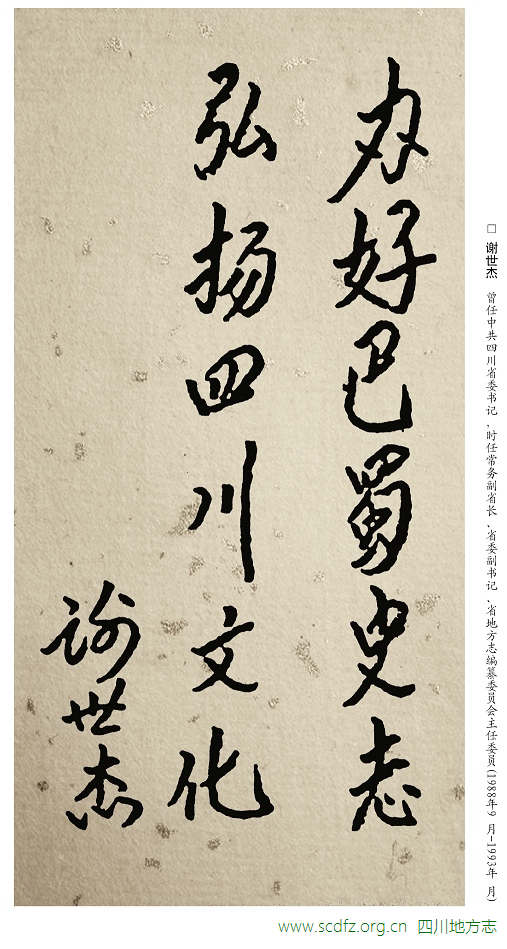 办好巴蜀史志
弘扬四川文化
谢世杰
□ 谢世杰 曾任中共四川省委书记，时任常务副省长、省委副书记、省地方志编纂委员会主任委员(1988年9 月-1993年 月)
www.scdfz.org.cn 四川地方志